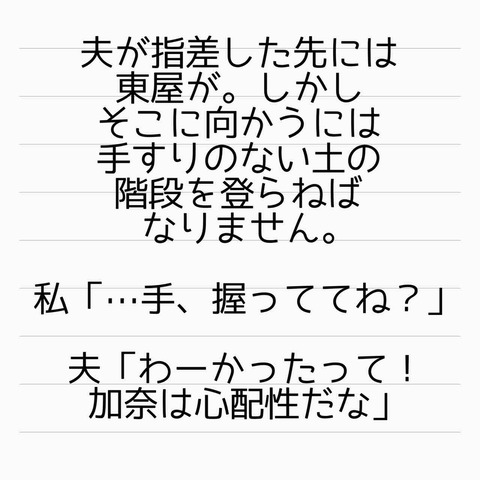 夫が指差した先には
東屋が。しかし
そこに向かうには
手すりのない土の
階段を登らねば
なりません。
私「…手、握っててね？」
夫「わーかったって！
加奈は心配性だな」